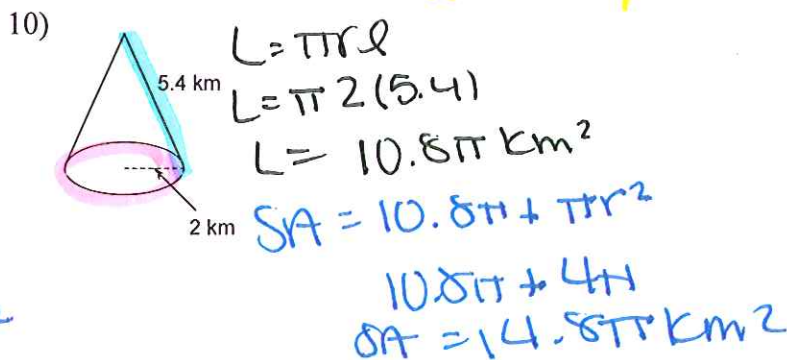 10)
5.4 km
2 km
L = πrl
L = π2(5.4)
L = 10.8π km²
SA = 10.8π + πr²
10.8π + 4π
SA = 14.8π km²